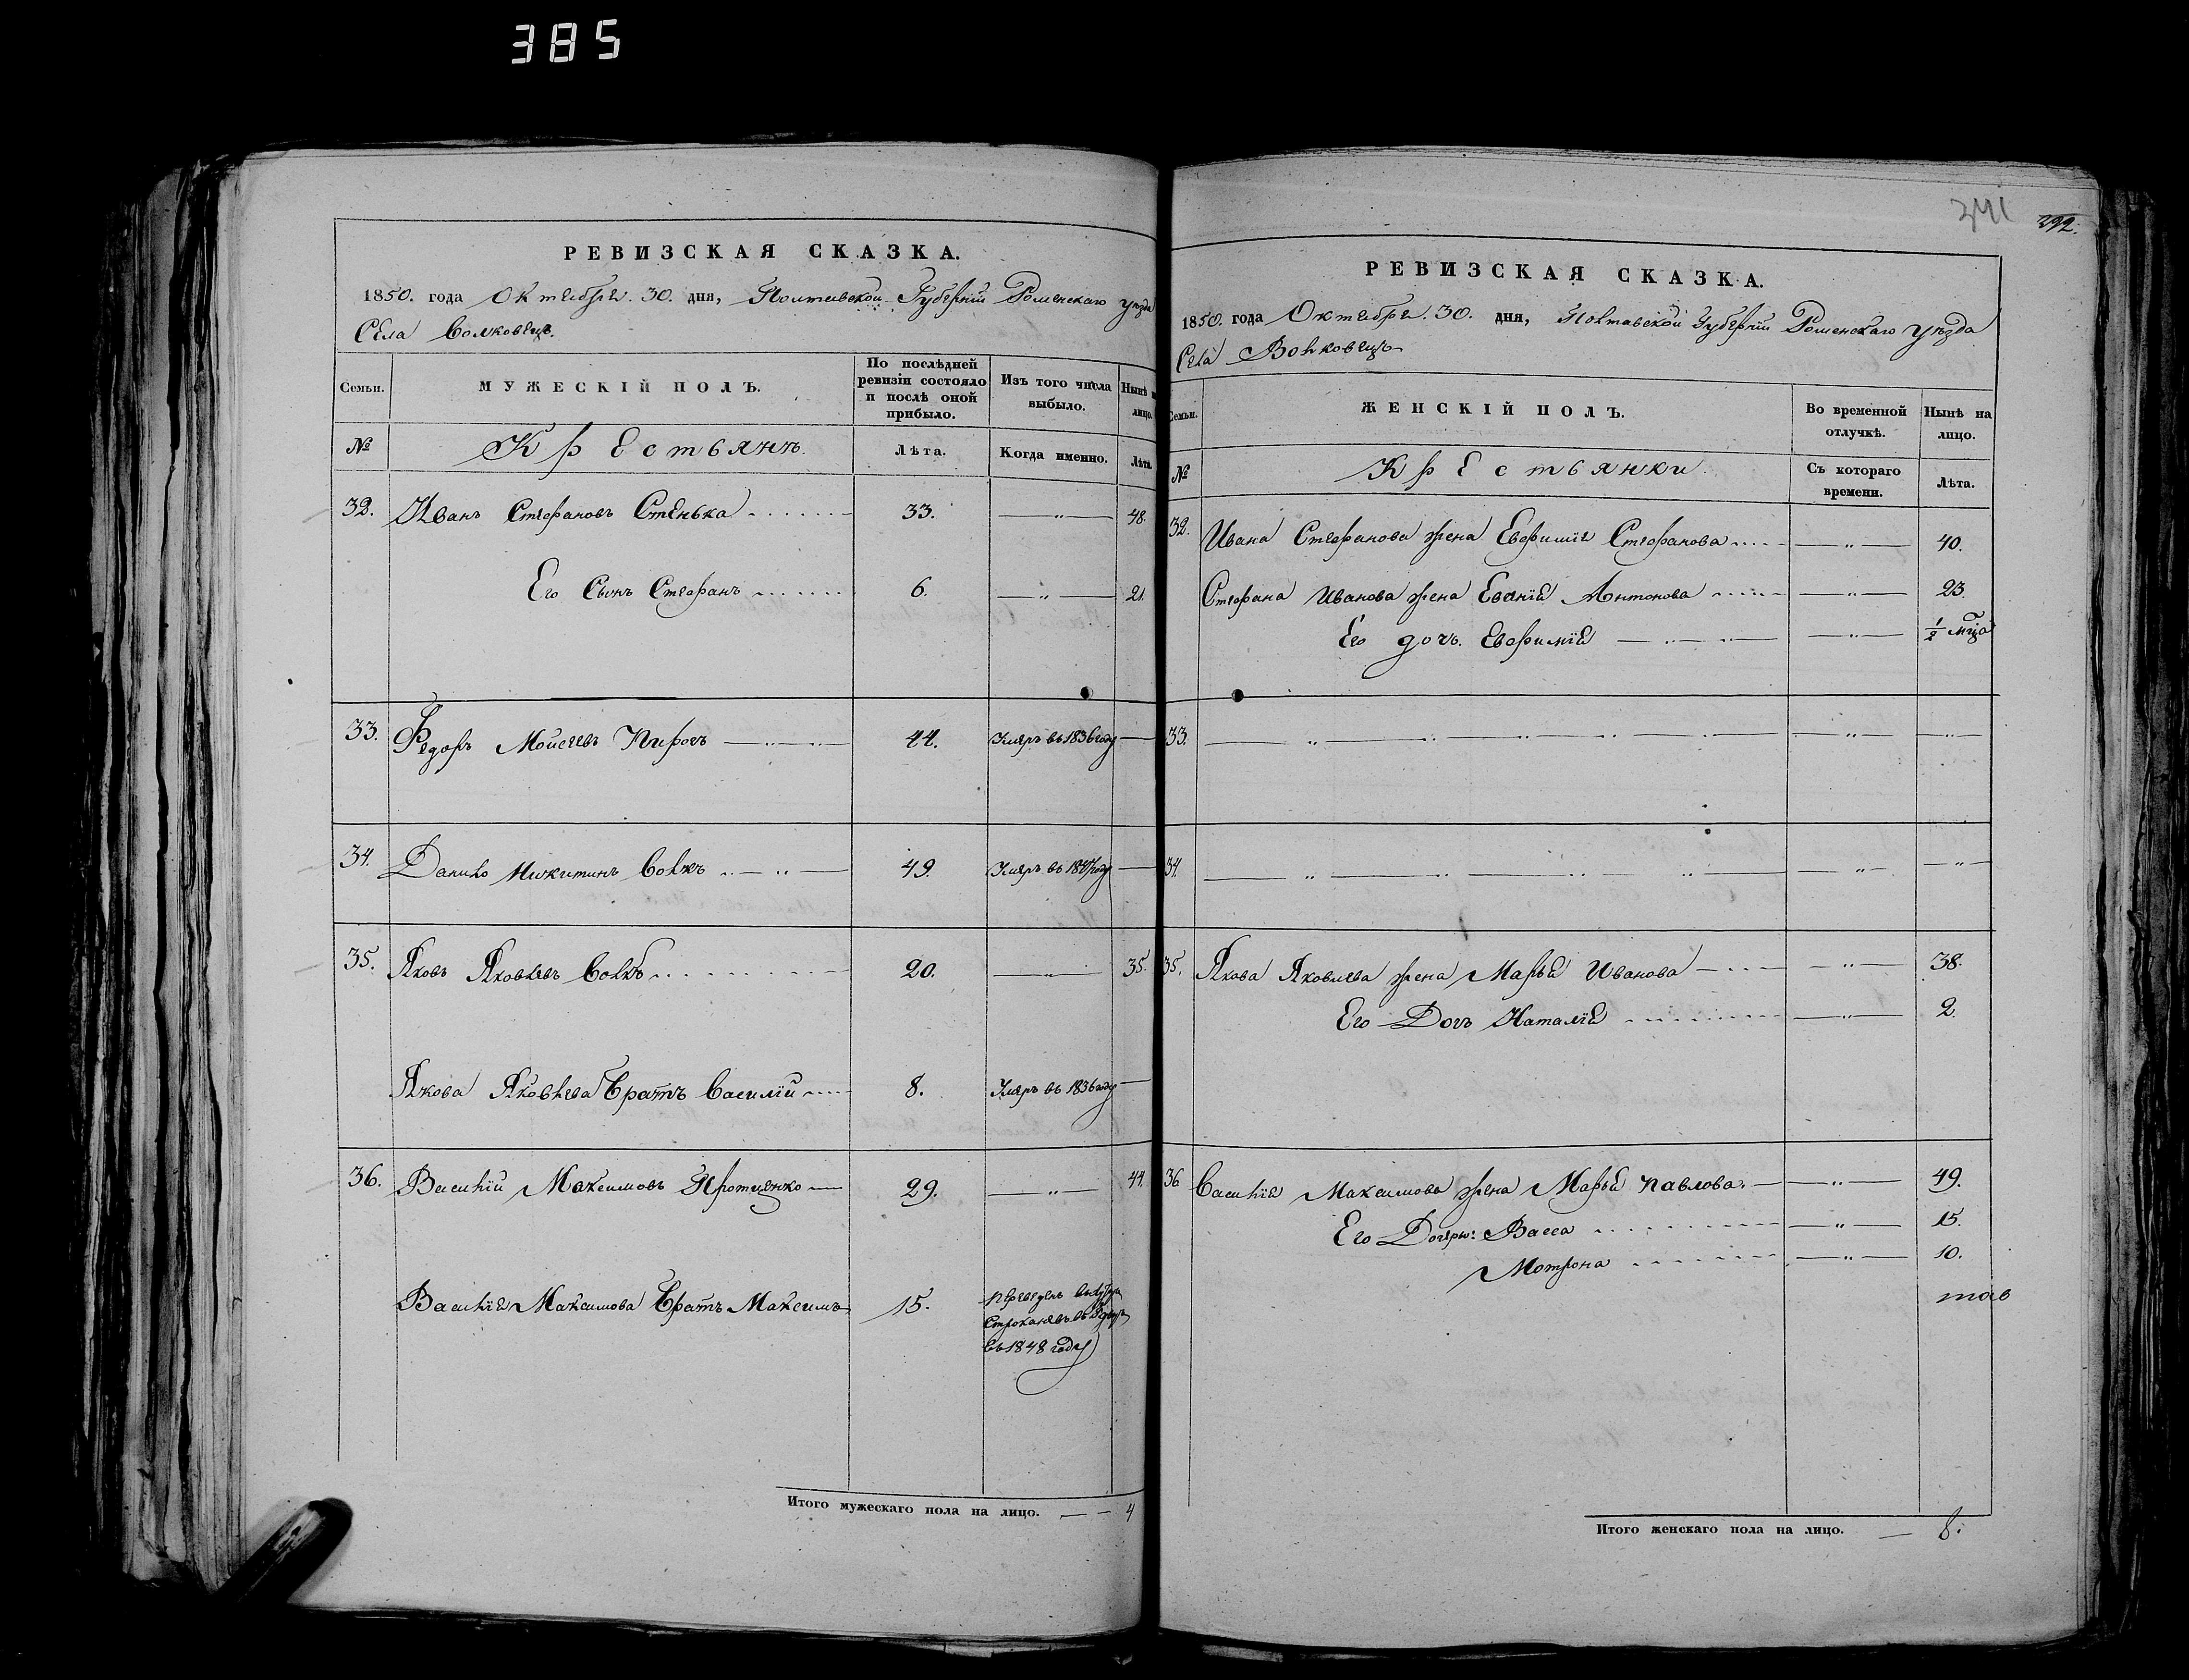 385
РЕВИЗСКАЯ СКАЗКА.
1850. года Октября. 30. дня, Полтавской Губернiи Роменскаго уѣзда
Села Волковецъ.
Семьи.
МУЖЕСКIЙ ПОЛЪ.
По послѣдней ревизiи состояло и послѣ оной прибыло.
Изъ того числа выбыло.
Нынѣ на лицо.
№
Крестьянѣ.
Лѣта.
Когда именно.
Лѣта.
32. Иванъ Стефановъ Стенька 33. — " — 48.
Его Сынъ Стефанъ 6. — " — 21.
33. Федоръ Мойсеевъ Пирогъ 44. Умръ въ 1836 году —
34. Данило Никитинъ 49. Умръ въ году —
35. Яковъ Яковлевъ 20. — " — 35.
Якова Яковлева Братъ Василiй 8. Умръ въ 1836 году —
36. Василiй Максимовъ Проценко 29. — " — 44.
Василiя Максимова Братъ Максимъ 15. переведенъ
въ 1848 году
Итого мужескаго пола на лицо. — 4
341
392.
РЕВИЗСКАЯ СКАЗКА.
1850. года Октября. 30. дня, Полтавской Губернiи Роменскаго уѣзда
Села Волковецъ
Семьи.
ЖЕНСКIЙ ПОЛЪ.
Во временной отлучкѣ.
Нынѣ на лицо.
№
Крестьянки.
Съ котораго времени.
Лѣта.
32. Ивана Стефанова жена Евфимiя Стефанова — " — 40.
Стефана Иванова жена Антонова — " — 23.
Его дочь Евфимiя — " — ½ мца
33. — " — " —
34. — " — " —
35. Якова Яковлева жена Марья Иванова — " — 38.
Его Дочь Наталiя — " — 2.
36 Василiя Максимова жена Марья Павлова. — " — 49.
Его Дочери: Васса — " — 15.
Мотрона — " — 10.
Итого женскаго пола на лицо. — 8.